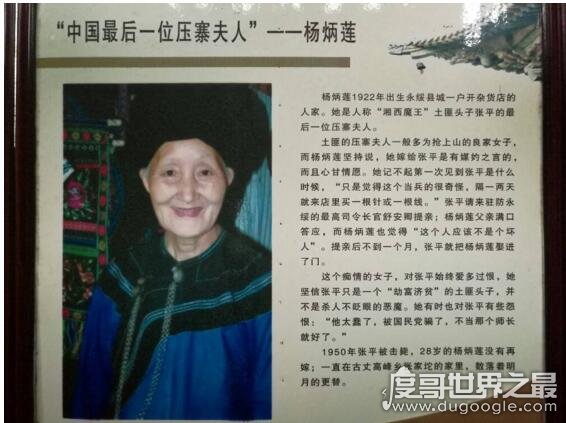 “中国最后一位压寨夫人”——杨炳莲
杨炳莲1922年出生永绥县城一户开杂货店的
人家。她是人称“湘西魔王”土匪头子张平的最
后一位压寨夫人。
土匪的压寨夫人一般多为抢上山的良家女子，
而杨炳莲坚持说，她嫁给张平是有媒妁之言的，
而且心甘情愿。她记不起第一次见到张平是什么
时候，“只是觉得这个当兵的很奇怪，隔一两天
就来店里买一根针或一根线。”张平请来驻防永
绥的最高司令长官舒安卿提亲；杨炳莲父亲满口
答应，而杨炳莲也觉得“这个人应该不是个坏
人”。提亲后不到一个月，张平就把杨炳莲娶进
了门。
这个痴情的女子，对张平始终爱多过恨，她
坚信张平只是一个“劫富济贫”的土匪头子，并
不是杀人不眨眼的恶魔。她有时也对张平有些怨
恨：“他太蠢了，被国民党骗了，不当那个师长
就好了。”
1950年张平被击毙，28岁的杨炳莲没有再
嫁；一直在古丈高峰乡张家坨的家里，数落着
明月的更替。
度哥世界之最
www.dugoogle.com